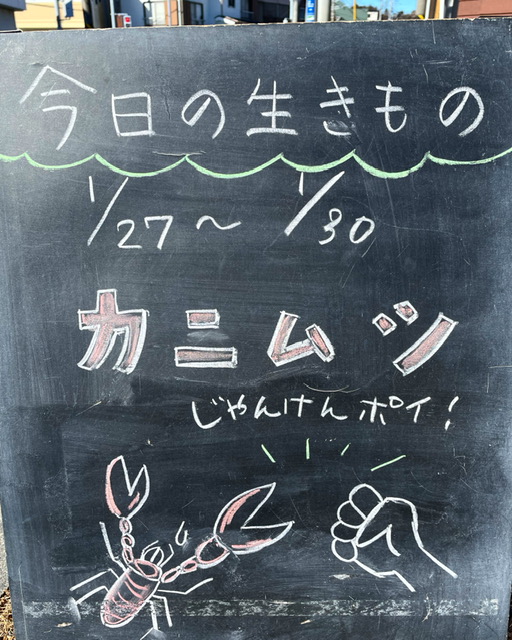 今日の生きもの
1/27〜1/30
カニムツ
じゃんけんポイ!